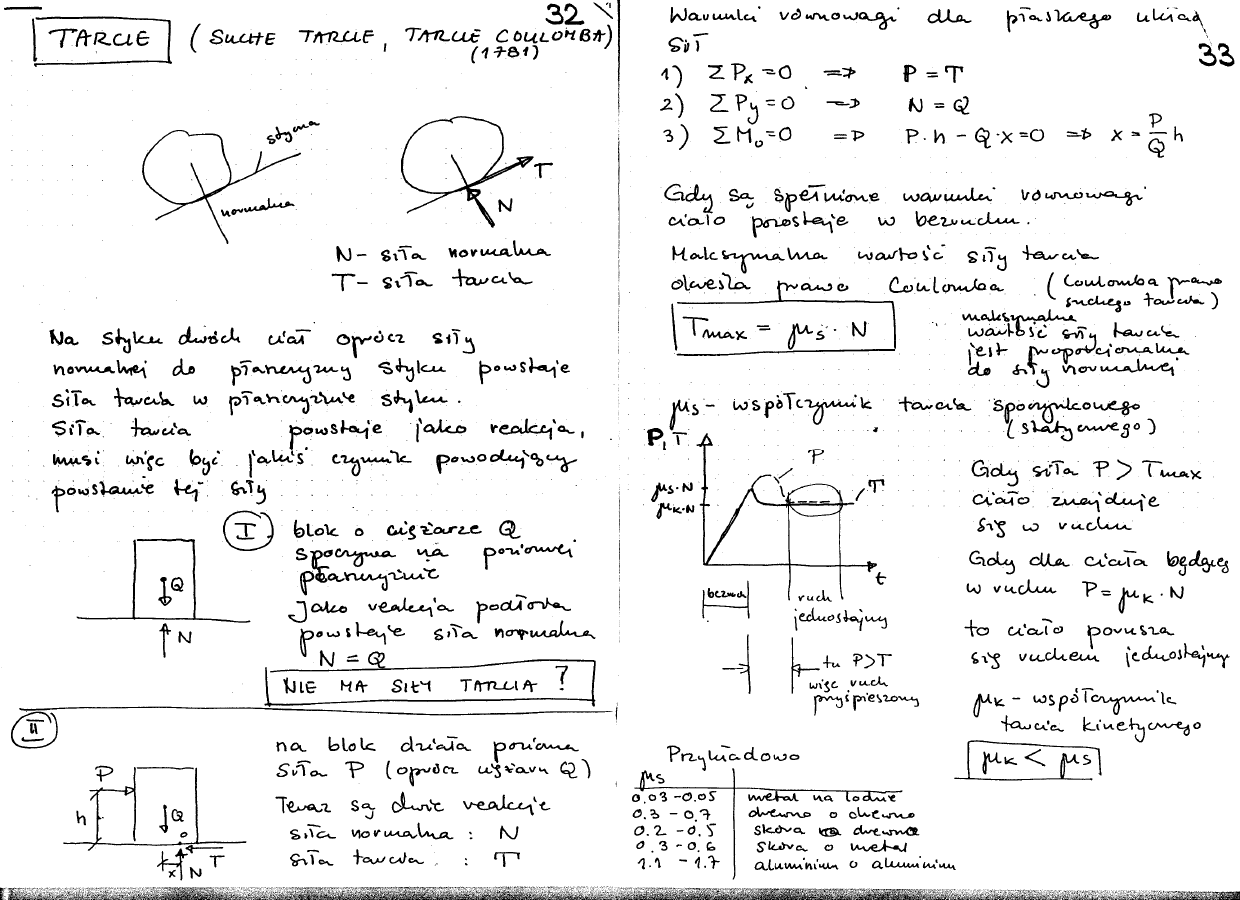 32
TARCIE (SUCHE TARCIE, TARCIE COULOMBA)
(1781)
styczna
normalna
T
N
N - siła normalna
T - siła tarcia
Na styku dwóch ciał oprócz siły
normalnej do płaszczyzny styku powstaje
siła tarcia w płaszczyźnie styku.
Siła tarcia powstaje jako reakcja,
musi więc być jakiś czynnik powodujący
powstanie tej siły
I blok o ciężarze Q
spoczywa na poziomej
płaszczyźnie
Jako reakcja podłoża
powstaje siła normalna
N = Q
Q
N
NIE MA SIŁY TARCIA ?
II
na blok działa pozioma
siła P (oprócz ciężaru Q)
Teraz są dwie reakcje
siła normalna : N
siła tarcia : T
P
h
Q
o
T
x N
Warunki równowagi dla płaskiego układ
sił
33
1) ΣPx = 0 => P = T
2) ΣPy = 0 => N = Q
3) ΣMo = 0 => P·h - Q·x = 0 => x = P/Q h
Gdy są spełnione warunki równowagi
ciało pozostaje w bezruchu.
Maksymalna wartość siły tarcia
określa prawo Coulomba (Coulomba prawo
suchego tarcia)
Tmax = μs · N
maksymalna
wartość siły tarcia
jest proporcjonalna
do siły normalnej
μs - współczynnik tarcia spoczynkowego
(statycznego)
P, T
P
μs·N
μk·N
T
t
bezruch
ruch
jednostajny
tu P>T
więc ruch
przyśpieszony
Gdy siła P > Tmax
ciało znajduje
się w ruchu
Gdy dla ciała będącej
w ruchu P = μk · N
to ciało porusza
się ruchem jednostajnym
μk - współczynnik
tarcia kinetycznego
μk < μs
Przykładowo
μs
0.03 - 0.05 metal na lodzie
0.3 - 0.7 drewno o drewno
0.2 - 0.5 skóra o drewno
0.3 - 0.6 skóra o metal
1.1 - 1.7 aluminium o aluminium